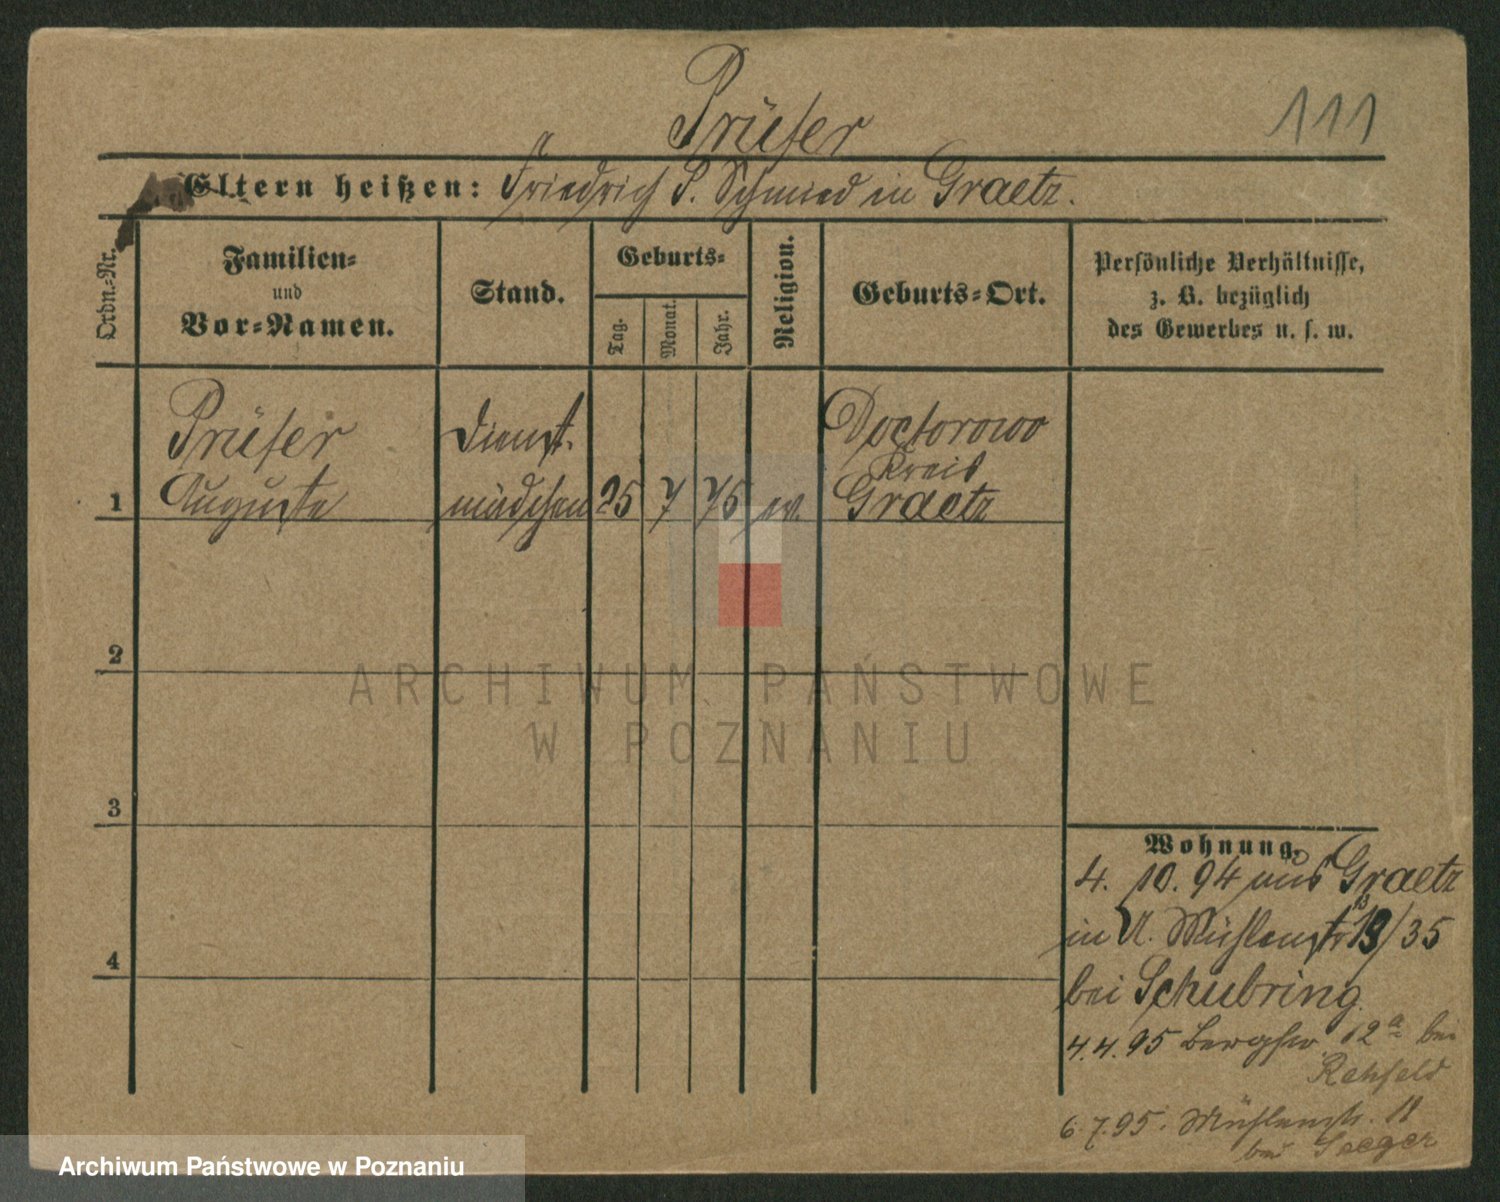 Prüfer
111
Eltern heißen: Friedrich P. Schmied in Graetz.
Ordn.-Nr.
Familien-
und
Vor-Namen.
Stand.
Geburts-
Tag.
Monat.
Jahr.
Religion.
Geburts-Ort.
Persönliche Verhältnisse,
z. B. bezüglich
des Gewerbes u. s. w.
Prüfer
Auguste
Dienst-
mädchen
1
25
7
75
ev.
Doctorowo
Kreis
Graetz
2
ARCHIWUM PAŃSTWOWE
W POZNANIU
3
4
Wohnung.
4. 10. 94 aus Graetz
in U. Mühlenstr 13/35
bei Schubring.
4.4.95 Bergstr. 12a bei
Rehfeld
6.7.95. Mühlenstr. 18
bei Seeger
Archiwum Państwowe w Poznaniu